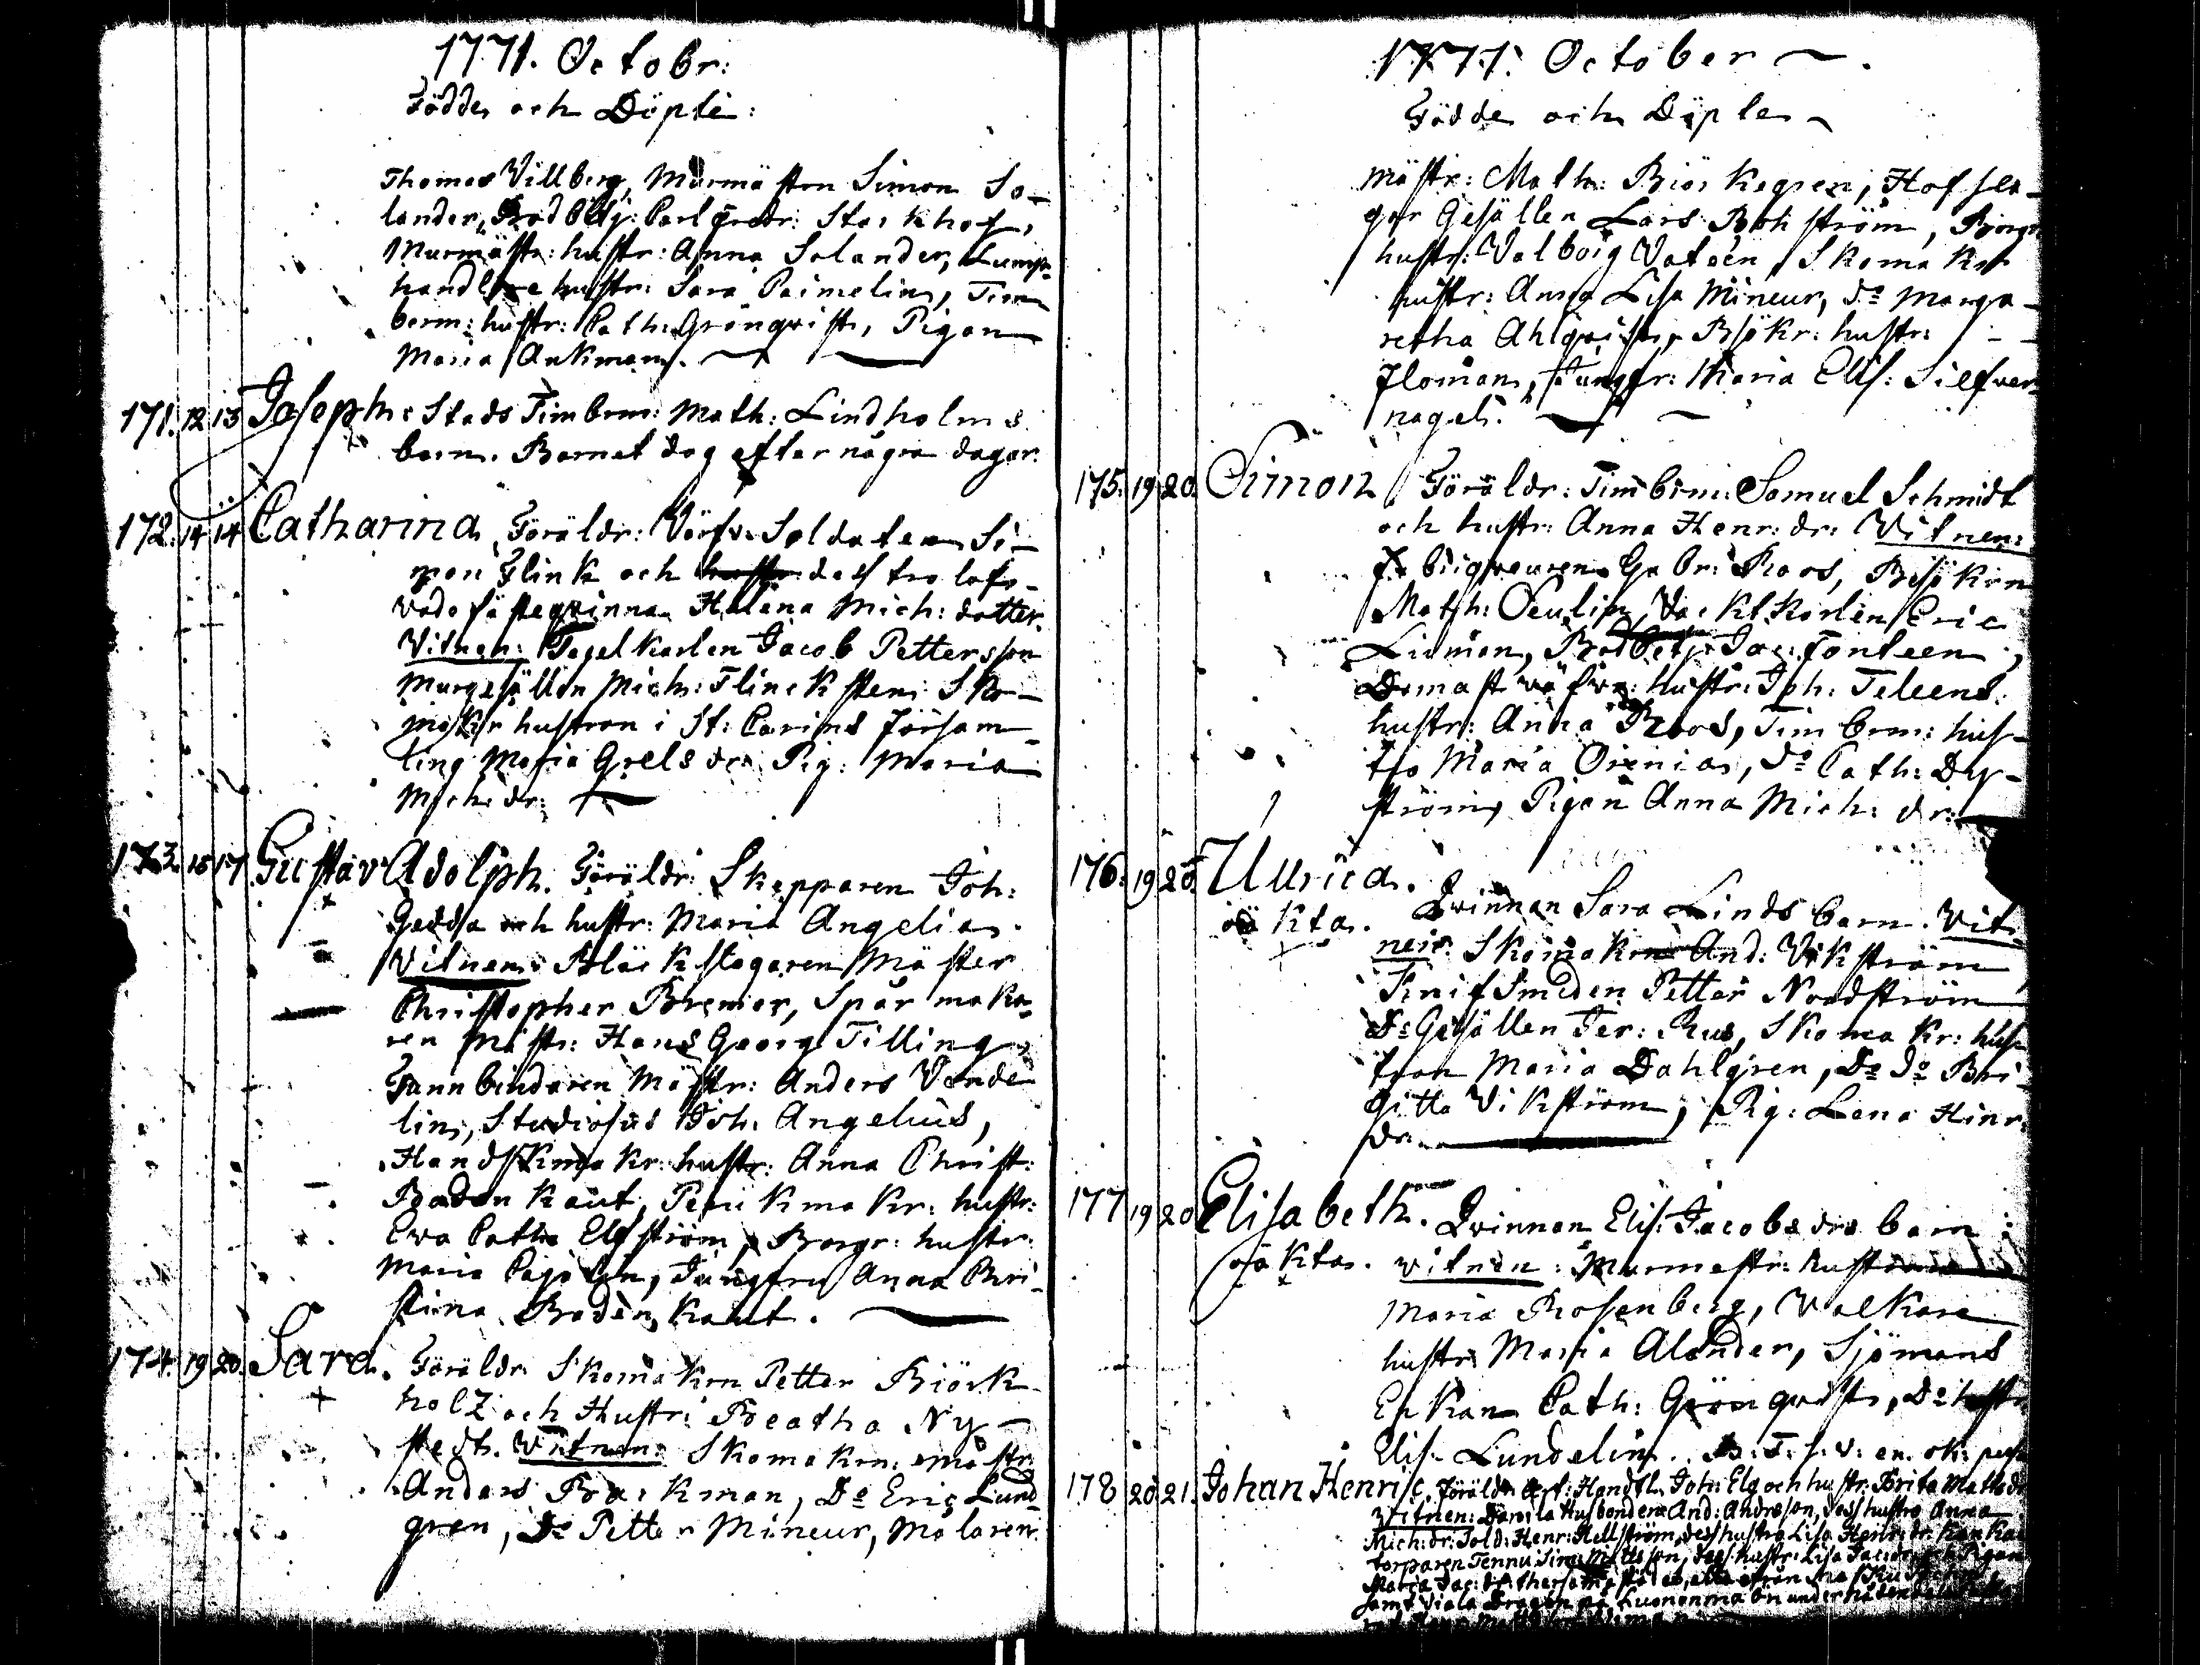 1771. Octobr:
Födde och Döpte:
Thomas Villberg, Murmästen Simon So-
lander, Carl Starkhof,
Murmästr: hustr: Anna Solander, Lump-
handlare hustr: Sara Paimelin, Tim
berm: hustr: Cath: Grönqvist, Pigan
Maria Ankman.
171. 12 13 Joseph: Stads Timbrm: Math: Lindholms
barn. Barnet dog efter några dagar.
172. 14 14 Catharina Föräldr: Värfv: Soldaten Si-
mon Flink och dess trolofv-
vade fästeqvinna Helena Mich: dotter.
Vitnen: Tegelkarlen Jacob Pettersson
Murgesällen Mich: Flinck sten: Sko-
makr hustron i St: Carins församl-
ling Maria Grels dr: Pig: Maria
Mich: dr:
173. 15 17 Gustav Adolph. Föräldr: Skepparen Joh:
Gedda och hustr: Maria Angelia.
Vitnen: Bläckslagaren Mäster
Christopher Bremer, Spårmaka-
ren Mästr: Hans Georg Tilling,
Tunnbindaren Mästr: Anders Vende
lin, Studiosus Joh: Angelius,
Handskmakr: hustr: Anna Christ:
Baden Kaut, Perukmakr: hustr:
Ewa Cath: Elfström, Borgr: hustr:
Maria Cajalin, Jungfru Anna Chri-
stina Baden Kaut.
174. 19 20. Sara. Föräldr: Skomakrn Petter Biörk
holz och Hustr: Beatha Ny-
stedt. Vitnen: Skomakrn: mästr:
Anders Backman, Do Eric Lund-
gren, Do Petter Mineur, Målaren
1771. October
Födde och Döpte
mästr: Math: Biörkegren, Hofsla-
gar Gesällen Lars Bohström, Borgr
hustr: Valborg Vateen, Skomakr
hustr: Anna Lisa Mineur, do Marga-
retha Ahlqvist, Bsökr: hustr: - -
Floman, Jungfr: Maria Elis: Silfver
nagel.
175. 19 20. Simon Föräldr: Timbrm: Samuel Schmidt
och hustr: Anna Henr: dr: Vitnen:
Gabr: Roos, Besökrn
Math: Paulin, Vacktkarlen Eric
Lidman, Jac: Fonteen,
Damast väfvr: hustr: Joh: Teleens
hustr: Anna Roos, Timbrm: hus-
tro Maria Orenia, do Cath: Dy-
ström, Pigan Anna Mich: dr:
176. 19 20. Ullrica. Qvinnan Sara Linds barn. Vit-
oäkta. nen: Skomakrn And: Vikström
Knifsmeden Petter Nordström
Do Gesällen Jer: Rus, Skomakr: hus-
tron Maria Dahlgren, Do do Bri-
gitta Vikström, Pig: Lena Hinr:
dr.
177 19 20 Elisabeth. Qvinnan Elis: Jacobs drs barn:
oäkta. vitnen: Murmestr: hustrun
Maria Rosenberg, Valkare
hustr: Maria Alander, Sjömans
Enkan Cath: Grönqvist, Do hustr
Elis. Lundelin.
178 20 21. Johan Henric. Föräldr: Handtl. Joh: Elg och hustr: Brita Matts dr
Vitnen: Husbonden And: Andersson, dess hustro Anna
Mich: dr: Sold: Henr: Hellström, dess hustro Lisa Henr: dr:
torparen Mattsson, dess hustr: Lisa Jac: dr: och Pigan
Maria Jac: dr
samt